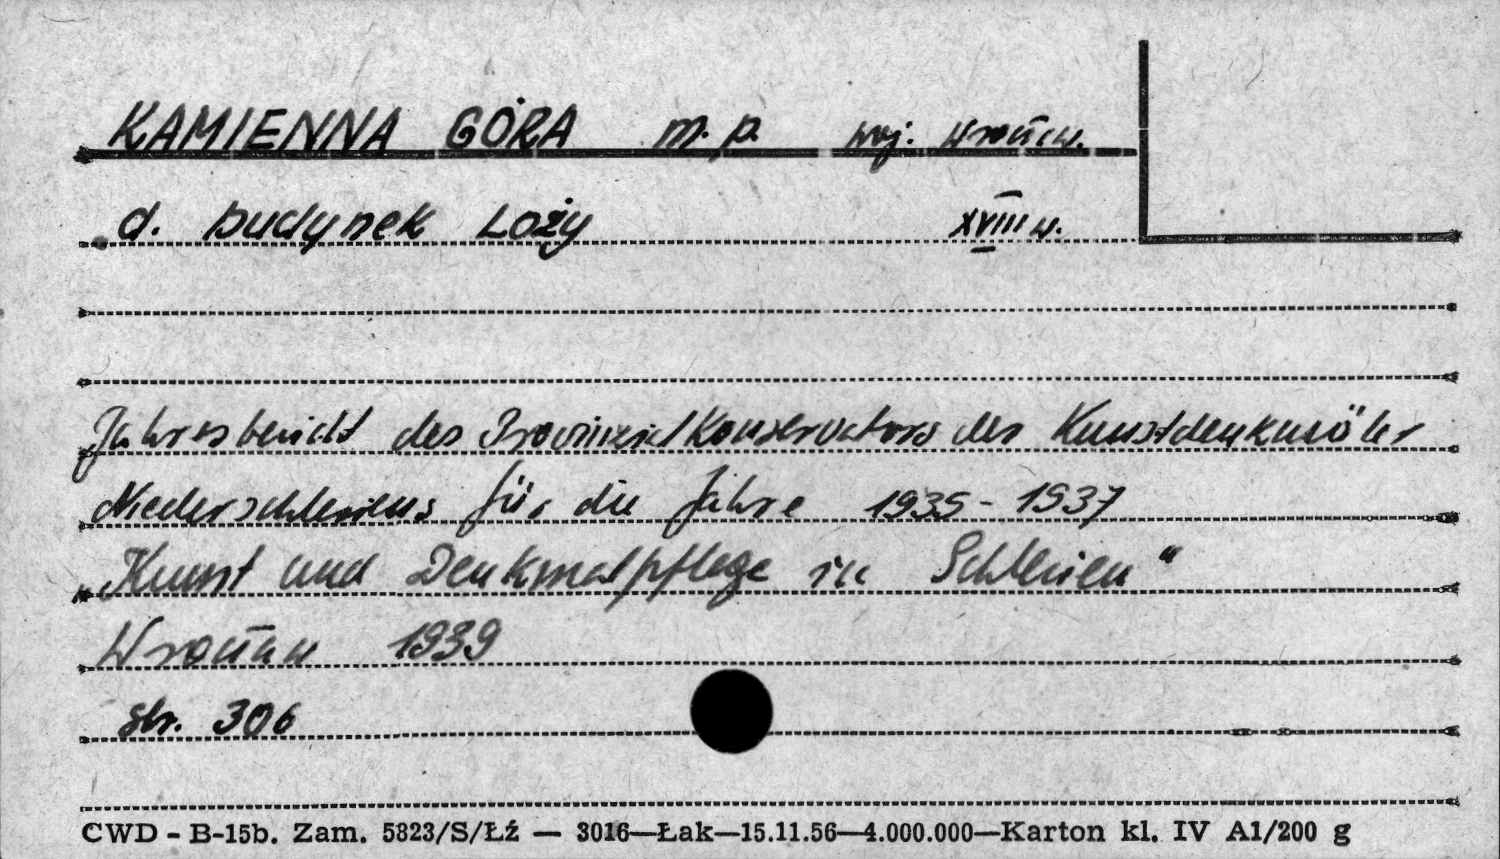 KAMIENNA GÓRA m. p. woj. Wrocław.
d. budynek Loży XVIII w.
Jahresbericht des Provinzialkonservators der Kunstdenkmäler
Niederschlesiens für die Jahre 1935-1937
„Kunst und Denkmalpflege in Schlesien"
Wrocław 1939
str. 306
CWD - B-15b. Zam. 5823/S/Łź — 3016—Łak—15.11.56—4.000.000—Karton kl. IV A1/200 g